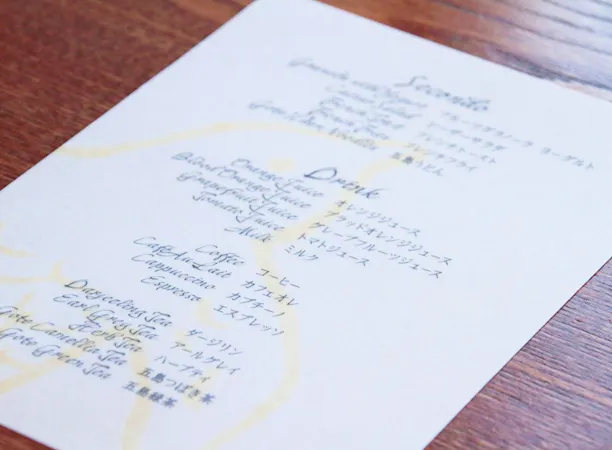 Secondo
Granola with Yogurt フルーツグラノーラ ヨーグルト
シーザーサラダ
フレンチトースト
フレンチフライ
Goto Udon Noodles 五島うどん
Drink
Orange Juice オレンジジュース
Blood Orange Juice ブラッドオレンジジュース
Grapefruit Juice グレープフルーツジュース
Tomato Juice トマトジュース
Milk ミルク
Coffee コーヒー
Café Au Lait カフェオレ
Cappuccino カプチーノ
Espresso エスプレッソ
Darjeeling Tea ダージリン
Earl Grey Tea アールグレイ
Herb Tea ハーブティ
Goto Camellia Tea 五島つばき茶
Goto Green Tea 五島緑茶